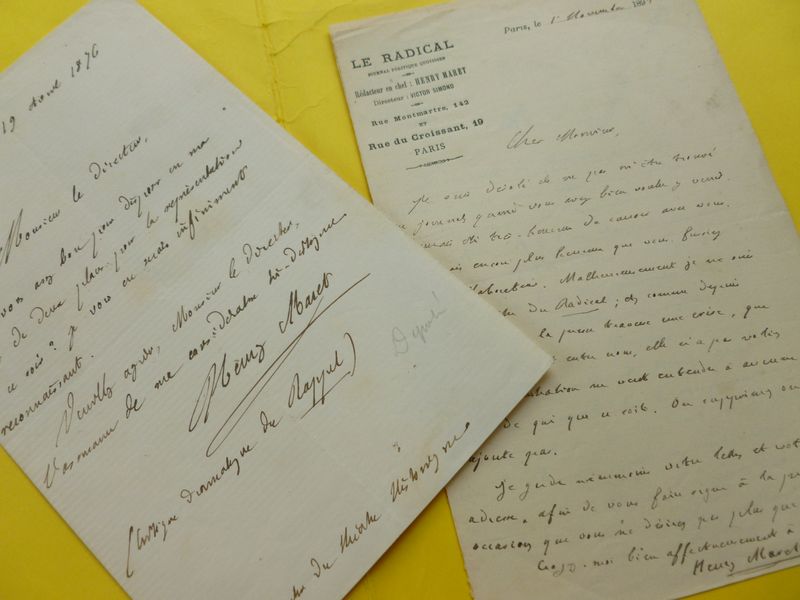 19 Avril 1876
Monsieur le Directeur,
vous assez bon pour disposer en ma
de deux places pour la représentation
ce soir ? Je vous en serais infiniment
reconnaissant.
Veuillez agréer, Monsieur le Directeur,
l'assurance de ma considération très-distinguée
Henry Maret
(Critique dramatique du Rappel)
du théâtre Historique
Député
LE RADICAL
JOURNAL POLITIQUE QUOTIDIEN
Rédacteur en chef : HENRY MARET
Directeur : VICTOR SIMOND
Rue Montmartre, 142
ET
Rue du Croissant, 19
PARIS
Paris, le 1er Novembre 189
Cher Monsieur,
Je suis désolé de ne pas m'être trouvé
au journal quand vous avez bien voulu y venir.
été très-heureux de causer avec vous.
encore plus heureux que vous fussiez
collaborateur. Malheureusement je ne suis
du Radical ; et comme depuis
la presse traverse une crise, que
entre nous, elle n'a pas volée
ne veut entendre à aucune
de qui que ce soit. On supprime, on
ajoute pas.
Je garde néanmoins votre lettre et votre
adresse, afin de vous faire signe à la
occasion que vous ne désirez pas plus que
Croyez-moi bien affectueusement à
Henry Maret